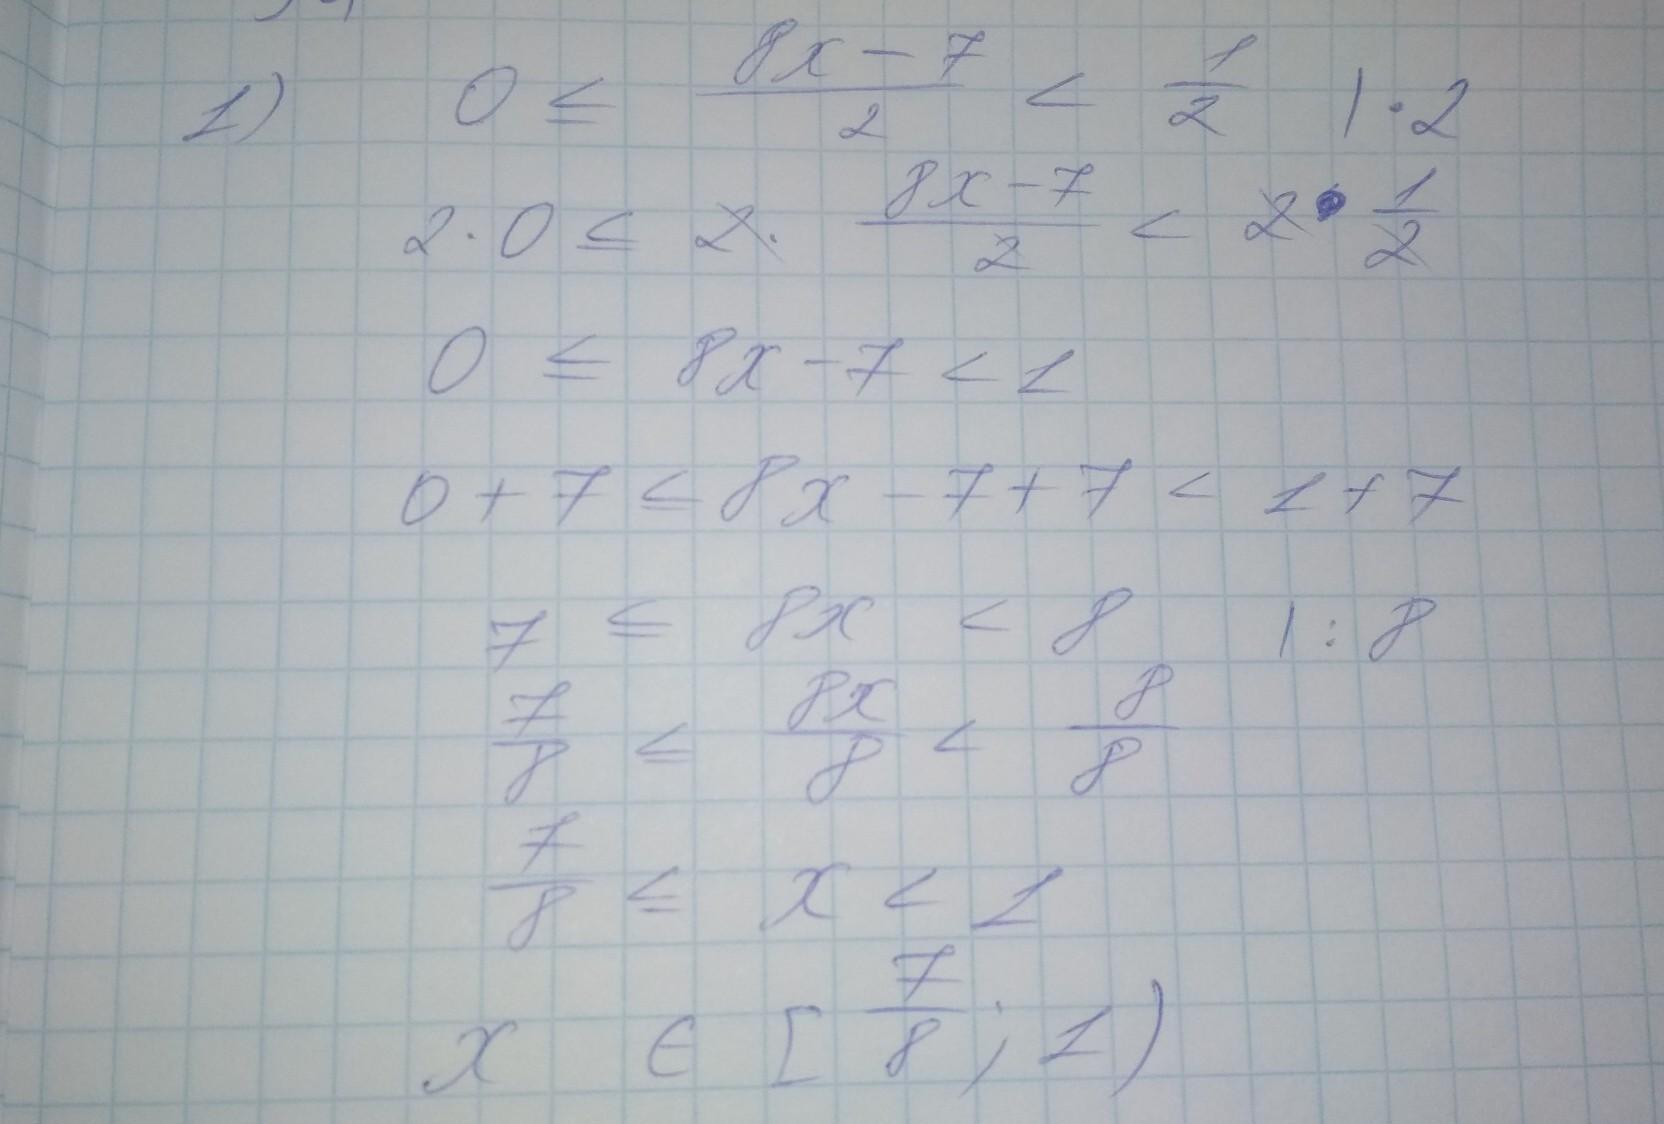 1) 0 ≤ (8x − 7)/2 < 1/2 | · 2
2 · 0 ≤ 2 · (8x − 7)/2 < 2 · 1/2
0 ≤ 8x − 7 < 1
0 + 7 ≤ 8x − 7 + 7 < 1 + 7
7 ≤ 8x < 8 | : 8
7/8 ≤ 8x/8 < 8/8
7/8 ≤ x < 1
x ∈ [7/8; 1)